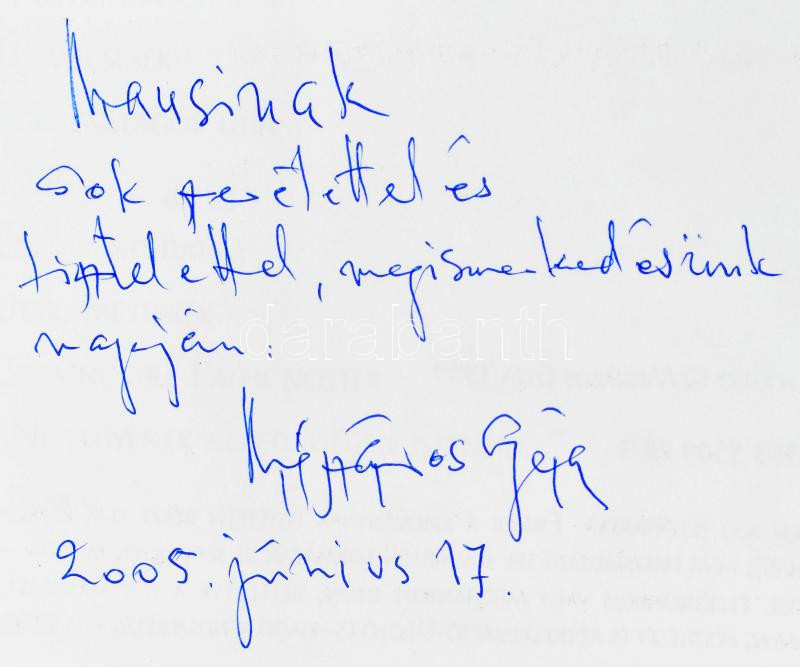 Mausinak
sok szeretettel és
tisztelettel, megismerkedésünk
napján:
Mészáros Géza
2005. június 17
darabanth